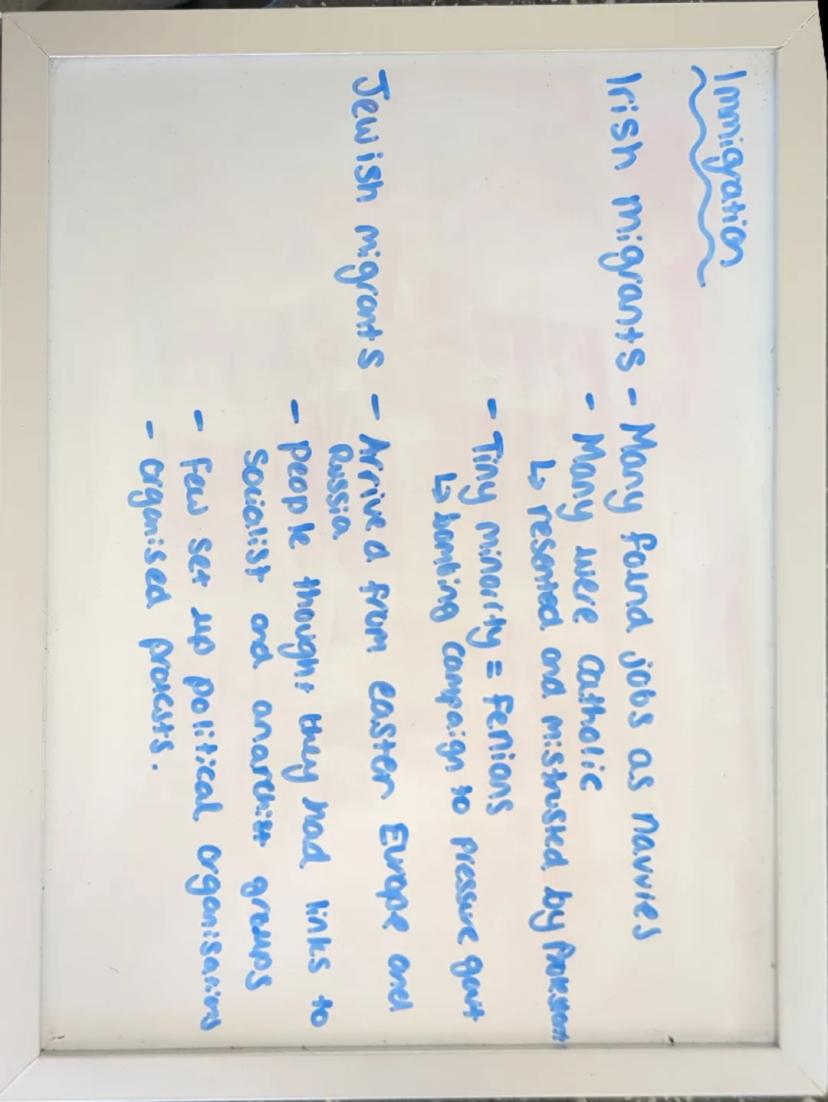 Immigration
Irish migrants - Many found jobs as navvies
- Many were catholic
↳ resented and mistrusted by Protestant
- Tiny minority = fenians
↳ bombing campaign to pressure govt
Jewish migrants - Arrived from easter Europe and
Russia
- people thought they had links to
socialist and anarchist groups
- few set up political organisations
- organised protests.